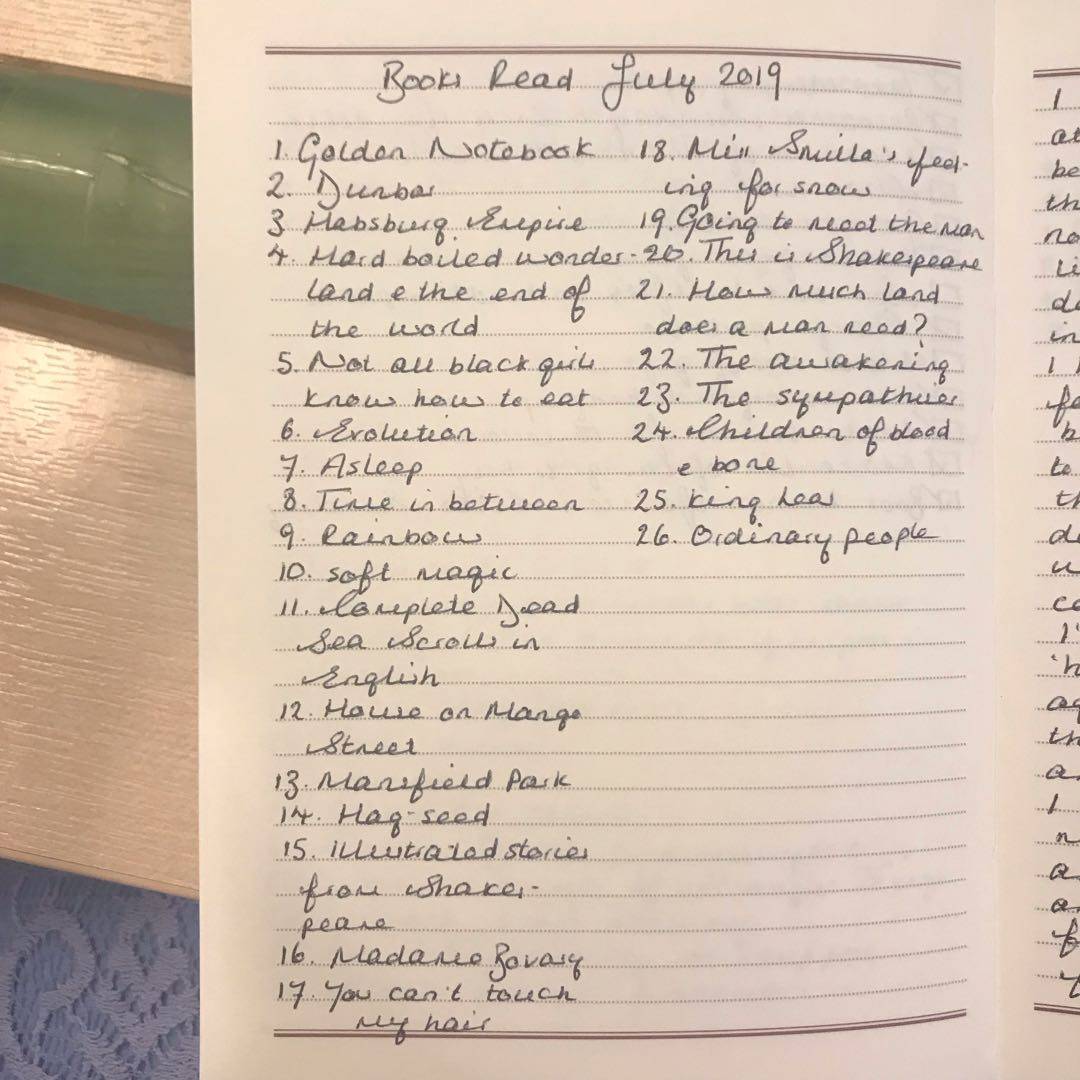 Books Read July 2019
1. Golden Notebook
2. Dunbar
3 Habsburg Empire
4. Hard boiled wonder-
land & the end of
the world
5. Not all black girls
know how to eat
6. Evolution
7. Asleep
8. Time in between
9. Rainbow
10. soft magic
11. Complete Dead
Sea Scrolls in
English
12. House on Mango
Street
13. Mansfield Park
14. Hag-seed
15. Illustrated stories
from Shakes-
peare
16. Madame Bovary
17. You can't touch
my hair
18. Miss Smilla's feel-
ing for snow
19. Going to meet the man
20. This is Shakespeare
21. How much land
does a man need?
22. The awakening
23. The sympathiser
24. Children of blood
& bone
25. King Lear
26. Ordinary people